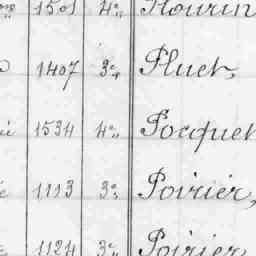 1501 4e Flourin
1407 3e Pluet,
1534 4e Pocquet
1113 3e Poirier,
1124 3e Poirier